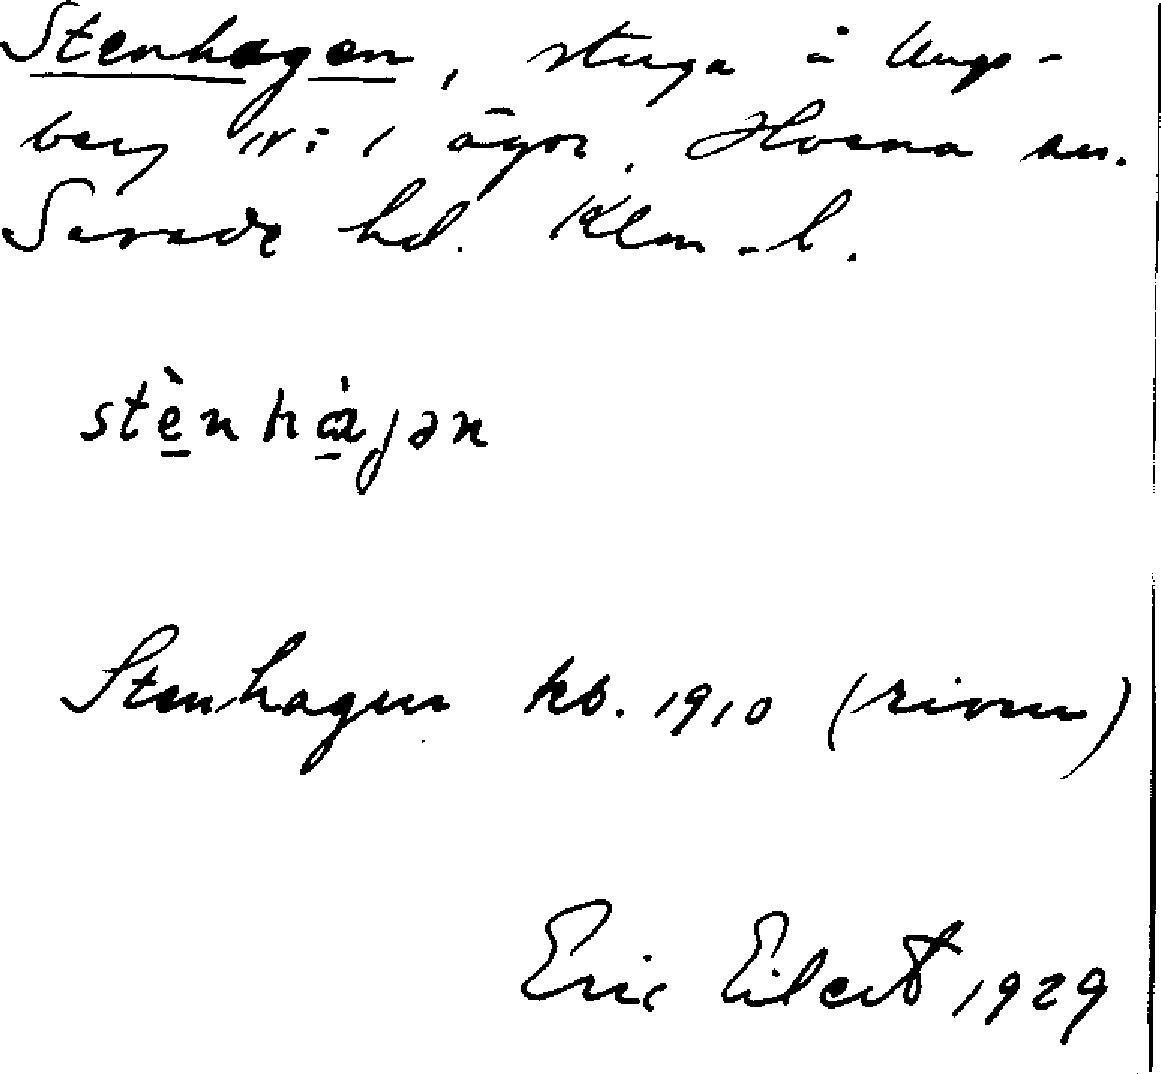 Stenhagen, stuga å Ungs-
berg N:1 ägor, Horna sn.
Sevede hd. Klm. l.
stènhàjən
Stenhagen kb. 1910 (riven)
Eric Eilert 1929